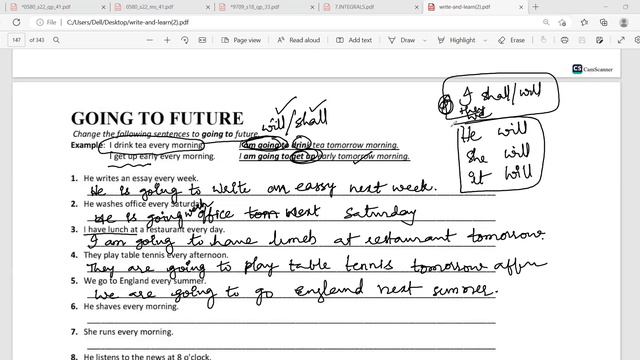 *0580_s22_qp_41.pdf
0580_s22_ms_41.pdf
*9709_s18_qp_33.pdf
7.INTEGRALS.pdf
write-and-learn(2).pdf
File C:/Users/Dell/Desktop/write-and-learn(2).pdf
147 of 343
Page view
Read aloud
Add text
Draw
Highlight
Erase
CS CamScanner
I shall/will
we
He will
She will
It will
will/shall
GOING TO FUTURE
Change the following sentences to going to future.
Example: I drink tea every morning. I am going to drink tea tomorrow morning.
I get up early every morning. I am going to get up early tomorrow morning.
1. He writes an essay every week.
He is going to write an eassy next week.
2. He washes office every Saturday.
He is going wash office tom next Saturday
3. I have lunch at a restaurant every day.
I am going to have lunch at restaurant tomorrow.
4. They play table tennis every afternoon.
They are going to play table tennis tomorrow
5. We go to England every summer.
We are going to go England next summer.
6. He shaves every morning.
7. She runs every morning.
8. He listens to the news at 8 o'clock.